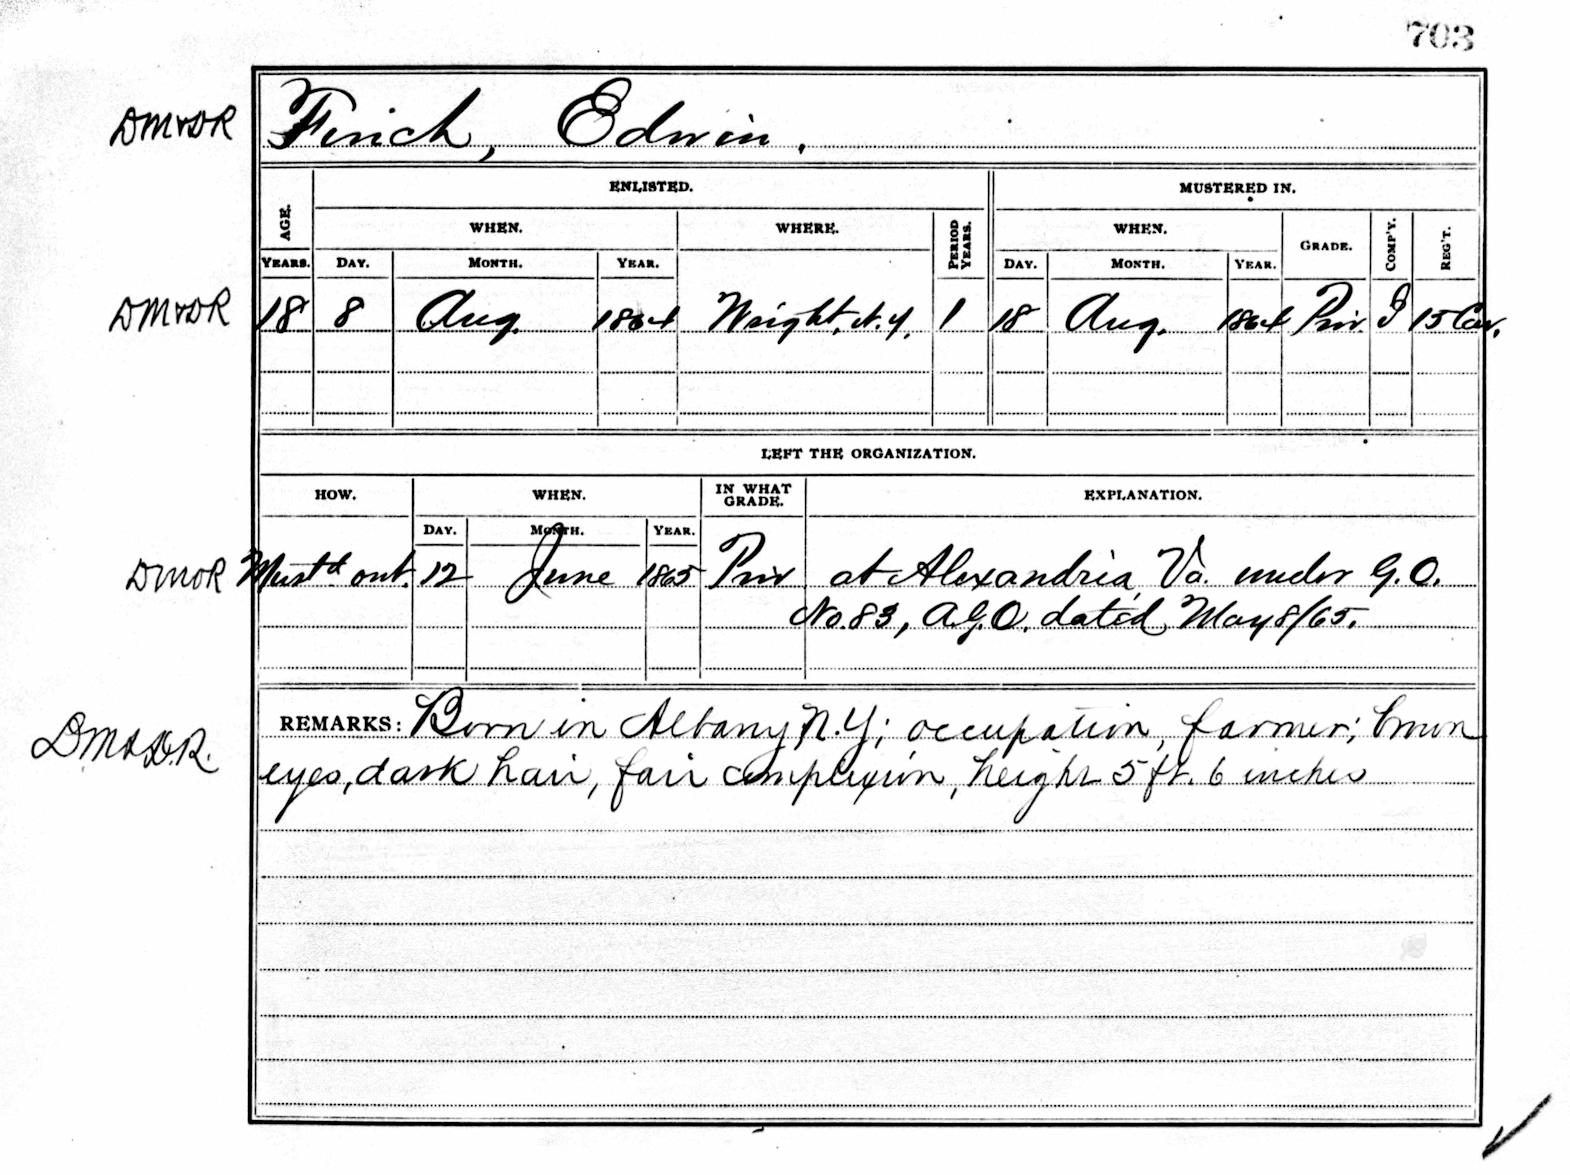 703
DM&DR Finch, Edwin.
ENLISTED. MUSTERED IN.
AGE. WHEN. WHERE. PERIOD YEARS. WHEN. GRADE. COMP'Y. REG'T.
YEARS. DAY. MONTH. YEAR. DAY. MONTH. YEAR.
DM&DR 18 8 Aug. 1864 Wright, N.Y. 1 18 Aug. 1864 Priv. I 15 Cav.
LEFT THE ORGANIZATION.
HOW. WHEN. IN WHAT GRADE. EXPLANATION.
DAY. MONTH. YEAR.
DMOR Must'd out. 12 June 1865 Priv at Alexandria, Va. under G.O.
No. 83, A.G.O. dated May 8/65.
DM&D.R. REMARKS: Born in Albany, N.Y; occupation, farmer; brown
eyes, dark hair, fair complexion, height 5 ft. 6 inches